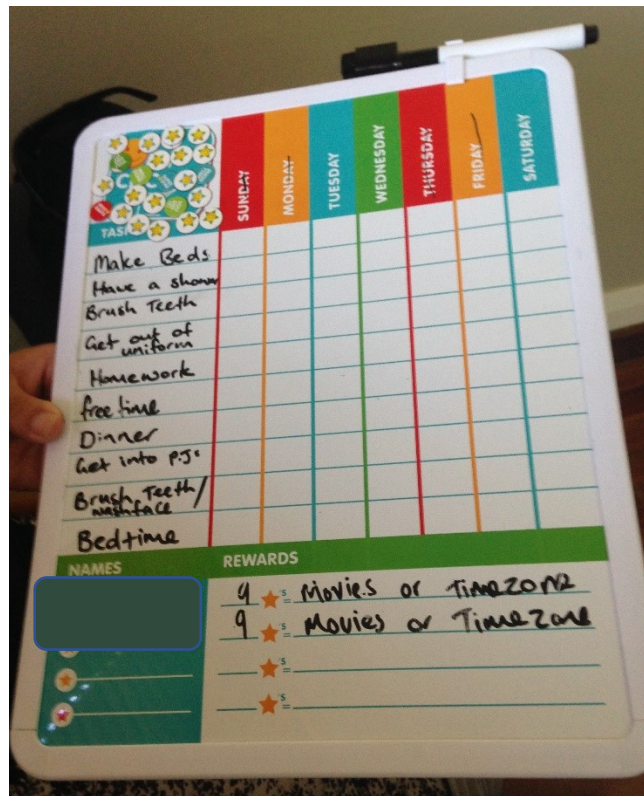 SUNDAY MONDAY TUESDAY WEDNESDAY THURSDAY FRIDAY SATURDAY
Make Beds
Have a shower
Brush Teeth
Get out of
uniform
Homework
free time
Dinner
Get into P.Js
Brush Teeth/
wash face
Bedtime
NAMES
REWARDS
9 's = Movies or Timezone
9 's = Movies or Timezone
's =
's =